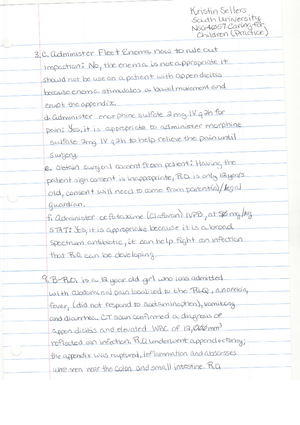 Kristin Sellers
South University
NSG4057 Caring for
Children (Practice)
3. c. Administer Fleet Enema now to rule out
impaction: No, the enema is not appropriate it
should not be use on a patient with appendicitis
because enema stimulates a bowel movement and
erupt the appendix.
d. Administer morphine sulfate 2mg IV q2h for
pain: Yes, it is appropriate to administer morphine
sulfate 2mg IV q2h to help relieve the pain until
surgery.
e. obtain surgical consent from patient: Having the
patient sign consent is inappropriate, R.O. is only 12 years
old, consent will need to come from parent(s)/legal
guardian.
f. Administer cefotaxime (Claforan) IVPB, at mg/kg
STAT: Yes, it is appropriate because it is a broad
spectrum antibiotic, it can help fight an infection
that R.O. can be developing.
is a 12 year old girl who was admitted
with abdominal pain localized to the RLQ, anorexia,
fever, (did not respond to acetaminophen), vomiting
and diarrhea. CT scan confirmed a diagnosis of
appendicitis and elevated WBC of mm³
reflected an infection. R.O. underwent appendectomy;
the appendix was ruptured, inflammation and abscesses
were seen near the colon and small intestine. R.O.